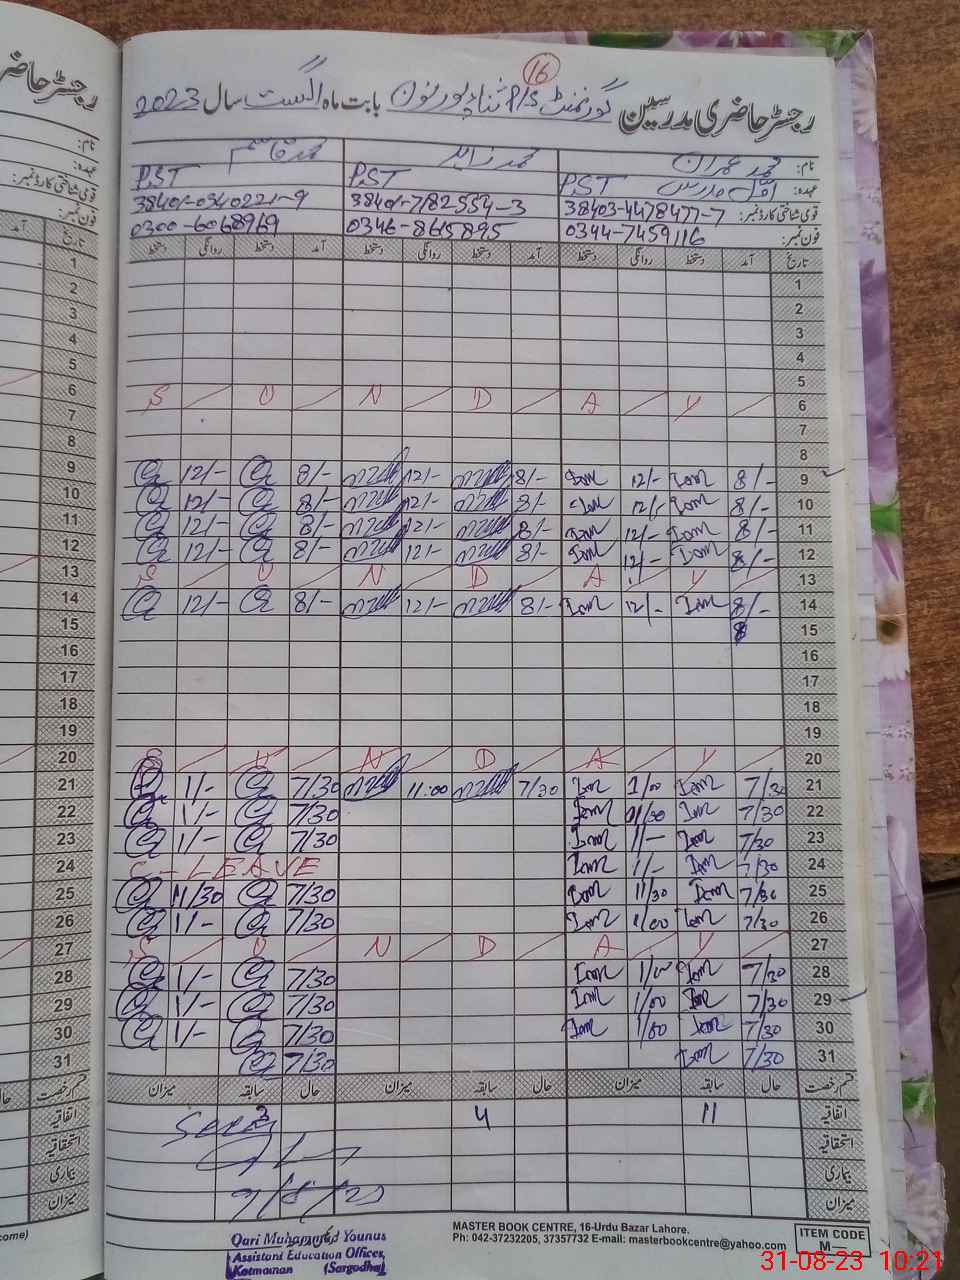 16
رجسٹر حاضری مدرسین گورنمنٹ P/S ثناء پور نون بابت ماہ اگست سال 2023
نام: محمد عمران محمد زاہد محمد قاسم
عہدہ: PST اول مدرس PST PST
قومی شناختی کارڈ نمبر: 38403-4478477-7 38401-7182554-3 38401-0940221-9
فون نمبر: 0344-7459116 0346-8615895 0300-6068969
تاریخ آمد دستخط روانگی دستخط آمد دستخط روانگی دستخط آمد دستخط روانگی دستخط
1
2
3
4
5
S U N D A Y 6
7
8
12/- 8/- 12/- 8/- Iam 12/- Iam 8/- 9
12/- 8/- 12/- 8/- Iam 12/- Iam 8/- 10
12/- 8/- 12/- 8/- Iam 12/- Iam 8/- 11
12/- 8/- 12/- 8/- Iam 12/- Iam 8/- 12
S U N D A Y 13
12/- 8/- 12/- 8/- Iam 12/- Iam 8/- 14
8 15
16
17
18
19
S U N D A Y 20
1/- 7/30 11:00 7/30 Iam 1/00 Iam 7/30 21
1/- 7/30 Iam 1/00 Iam 7/30 22
1/- 7/30 Iam 1/- Iam 7/30 23
C - LEAVE Iam 1/- Iam 7/30 24
11/30 7/30 Iam 11/30 Iam 7/30 25
1/- 7/30 Iam 1/00 Iam 7/30 26
S U N D A Y 27
1/- 7/30 Iam 1/00 Iam 7/30 28
1/- 7/30 Iam 1/00 Iam 7/30 29
1/- 7/30 Iam 1/00 Iam 7/30 30
7/30 Iam 7/30 31
قسم رخصت حال سابقہ میزان حال سابقہ میزان حال سابقہ میزان
اتفاقیہ 11 4 3
استحقاقیہ
بیماری
میزان
Seen
Qari Muhammad Younus
Assistant Education Officer,
Kotmoman (Sargodha)
MASTER BOOK CENTRE, 16-Urdu Bazar Lahore.
Ph: 042-37232205, 37357732 E-mail: masterbookcentre@yahoo.com
ITEM CODE
M—
31-08-23 10:21